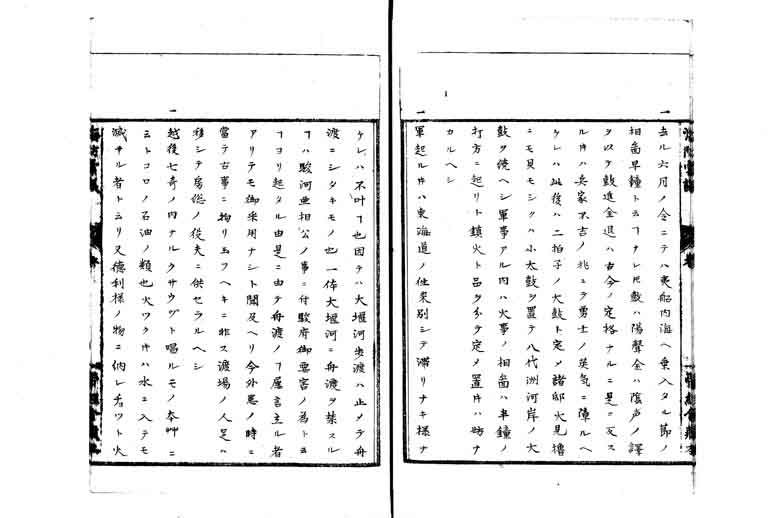 一 去ル六月ノ令ニテハ夷船内海ヘ乗入タル節ノ
相啚早鐘トヿナレ𪜈皷ハ陽聲金ハ陰声ノ譯
ヲ以テ皷進金退ハ古今ノ定格ナルニ是ニ反ス
ルヰハ兵家不吉ノ兆ニテ勇士ノ英気ニ障ルヘ
ケレハ此後ハ二拍子ノ大皷ト定メ諸邸火見櫓
ニモ貝モシクハ小太皷ヲ置テ八代洲河岸ノ大
皷ヲ侯ヘシ軍事アル内ハ火事ノ相啚ハ半鐘ノ
打方ニ起リト鎮火ト品ヲ分テ定メ置ヰハ妨ナ
カルヘシ
一 軍起ルヰハ東海道ノ往来別シテ滞リナキ様ナ
ケレハ不叶ヿ也因テハ大堰河歩渡ハ止メテ舟
渡ニシタキモノ也一体大堰河ニ舟渡ヲ禁スル
ヿハ駿河亜相公ノ事ニ付駿府御要害ノ為ト云
ヿヨリ起タル由是ニ由テ舟渡ノヿ屡言立ル者
アリテモ御採用ナシト聞及ヘリ今外患ノ時ニ
當テ古事ニ拘リ玉フヘキニ非ス渡場ノ人足ハ
移シテ房総ノ役夫ニ供セラルヘシ
一 越後七奇ノ内ナルクサウヅト唱ルモノ本艸ニ
ミトコロノ石油ノ類也火ツクヰハ水ニ入テモ
滅ヰル者ト云リ又德利様ノ物ニ納レチョット火